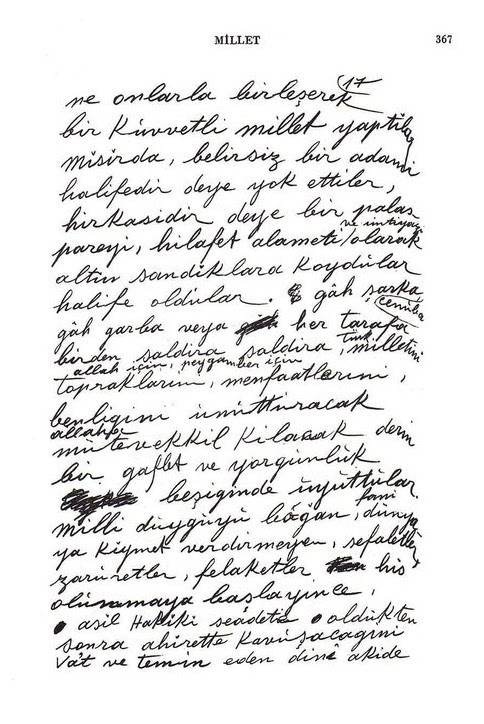 MİLLET 367
17
ne onlarla birleşerek
bir Kuvvetli millet yaptılar
Mısırda, belirsiz bir adamı
halifedir deye yok ettiler,
hırkasıdır deye bir palas
ve imtiyaz
pareyi, hilafet alameti olarak
altın sandıklara koydular
halife oldular. gâh şarka,
cenuba
gâh garba veya her tarafa
birden saldıra saldıra, Türk milletini
allah için, peygamber için
topraklarını, menfaatlerini,
benligini unutturacak
allaha
mütevekkil kılacak derin
bir gaflet ve yorgunluk
beşiginde uyuttular
fani
Milli duyguyu boğan, dünya
ya kıymet verdirmeyen, sefaletler,
zaruretler, felaketler his
olunmaya başlayınca,
asıl Hakiki seadete oldukten
sonra ahirette Kavuşacagını
va't ve temin eden dinî akide